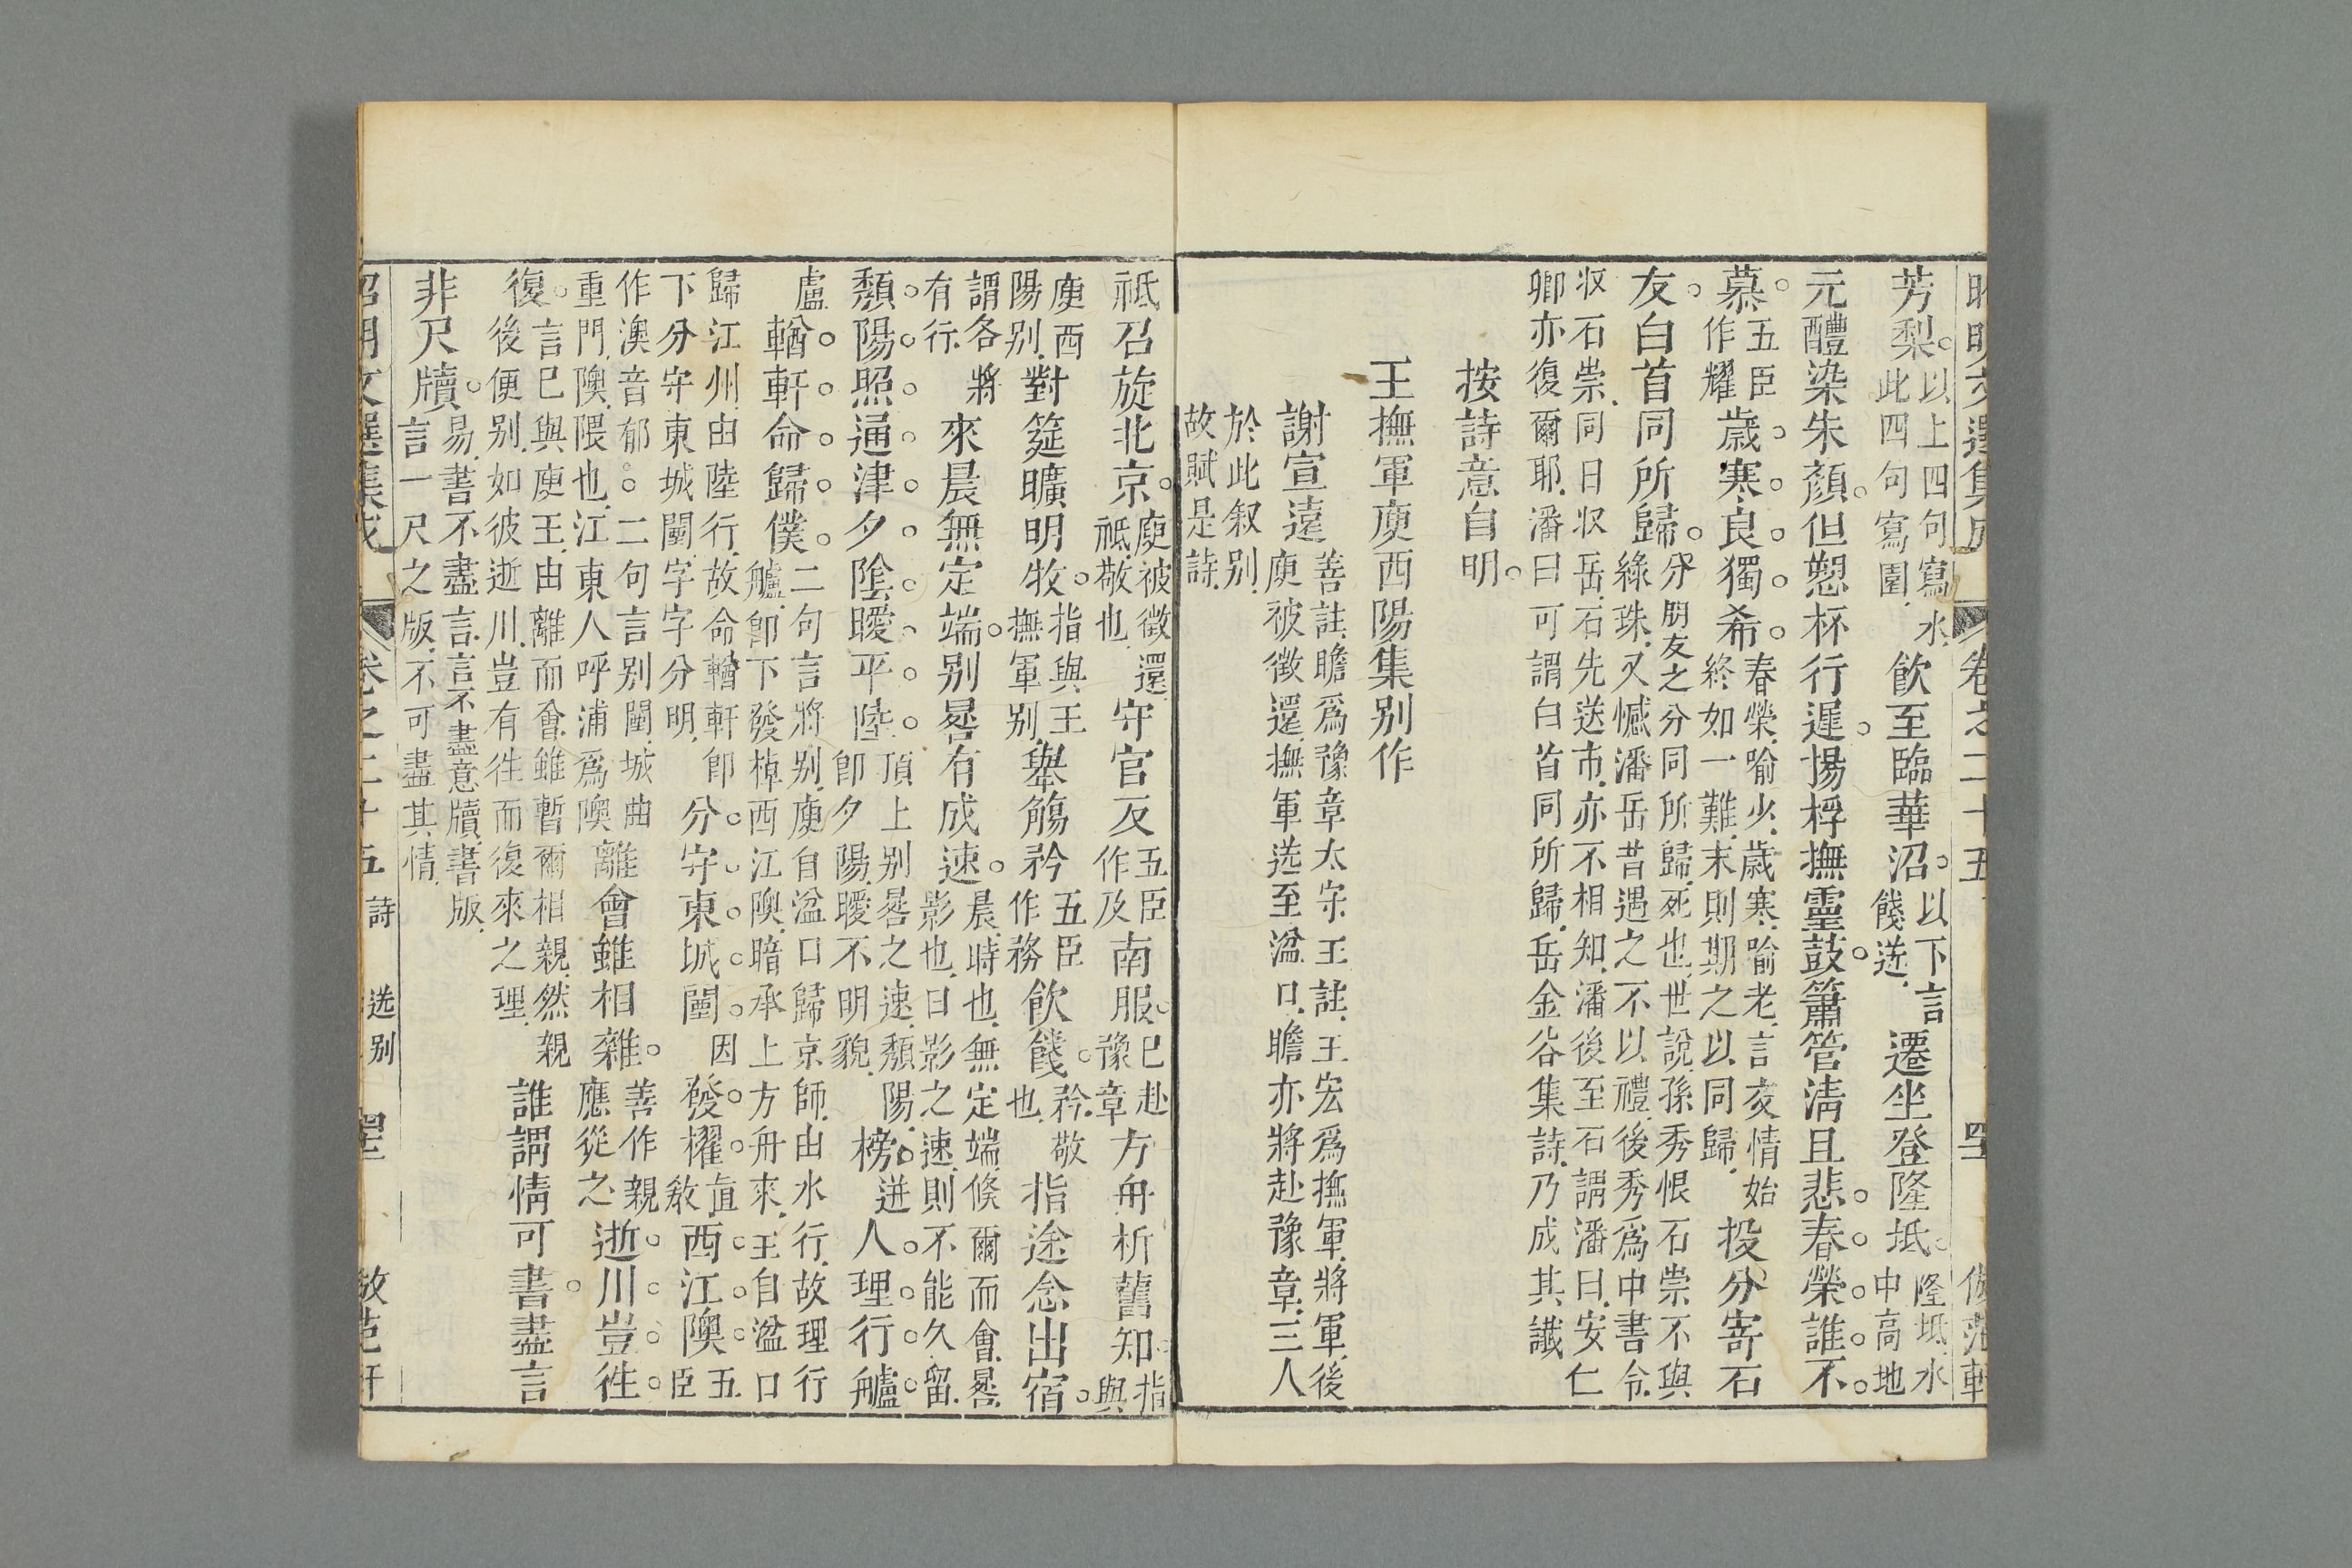 昭明文選集成 卷之二十五 倣范軒
芳梨。以上四句寫水。此四句寫園。飲至臨華沼。以下言餞送。遷坐登隆坻。隆坻、水中高地
元醴染朱顏。但愬杯行遲。揚桴撫靈鼓。簫管清且悲。春榮誰不
慕。五臣作耀歲寒良獨希。春榮、喻少、歲寒、喻老、言交情始終如一難、末則期之以同歸。投分寄石
友。白首同所歸。分、朋友之分同所歸、死也、世說、孫秀恨石崇不與綠珠、又憾潘岳昔遇之不以禮、後秀爲中書令、
收石崇、同日收岳、石先送市、亦不相知、潘後至石謂潘曰、安仁
卿亦復爾耶、潘曰可謂白首同所歸、岳金谷集詩、乃成其讖
按詩意自明。
王撫軍庾西陽集別作
謝宣遠善註、瞻爲豫章太守、王註、王宏爲撫軍將軍、後庾被徵還、撫軍送至湓口、瞻亦將赴豫章、三人
於此叙別、故賦是詩、
祗召旋北京。庾被徵還、祗、敬也、守官反五臣作及南服。已赴豫章方舟析舊知。指與
庾西陽別、對筵曠明牧。指與王撫軍別、舉觴矜五臣作務飲餞。矜、敬也、指途念出宿。
謂各將有行、來晨無定端。別晷有成速。晨、時也、無定端、倏爾而會、晷、影也、日影之速、則不能久留、
頹陽照通津。夕陰曖平陸。頂上別晷之速、頹陽、即夕陽、曖不明貌、榜迸人理行艫。
盧輶軒命歸僕。二句言將別、庾自湓口歸京師、由水行、故理行艫、即下發棹西江隩、暗承上方舟來、王自湓口
歸江州、由陸行、故命輶軒、即下分守東城闉、字字分明、分守東城闉。因發櫂直敎西江隩。五臣
作澳音郁。二句言別闉、城曲重門、隩、隈也、江東人呼浦爲隩離會雖相雜。善作親應從之逝川豈徃
復。言已與庾王、由離而會、雖暫爾相親、然親後便別、如彼逝川、豈有徃而復來之理、誰謂情可書。盡言
非尺牘。易、書不盡言、言不盡意、牘、書版、言一尺之版、不可盡其情、
昭明文選集成 卷之二十五 詩 送別 倣范軒